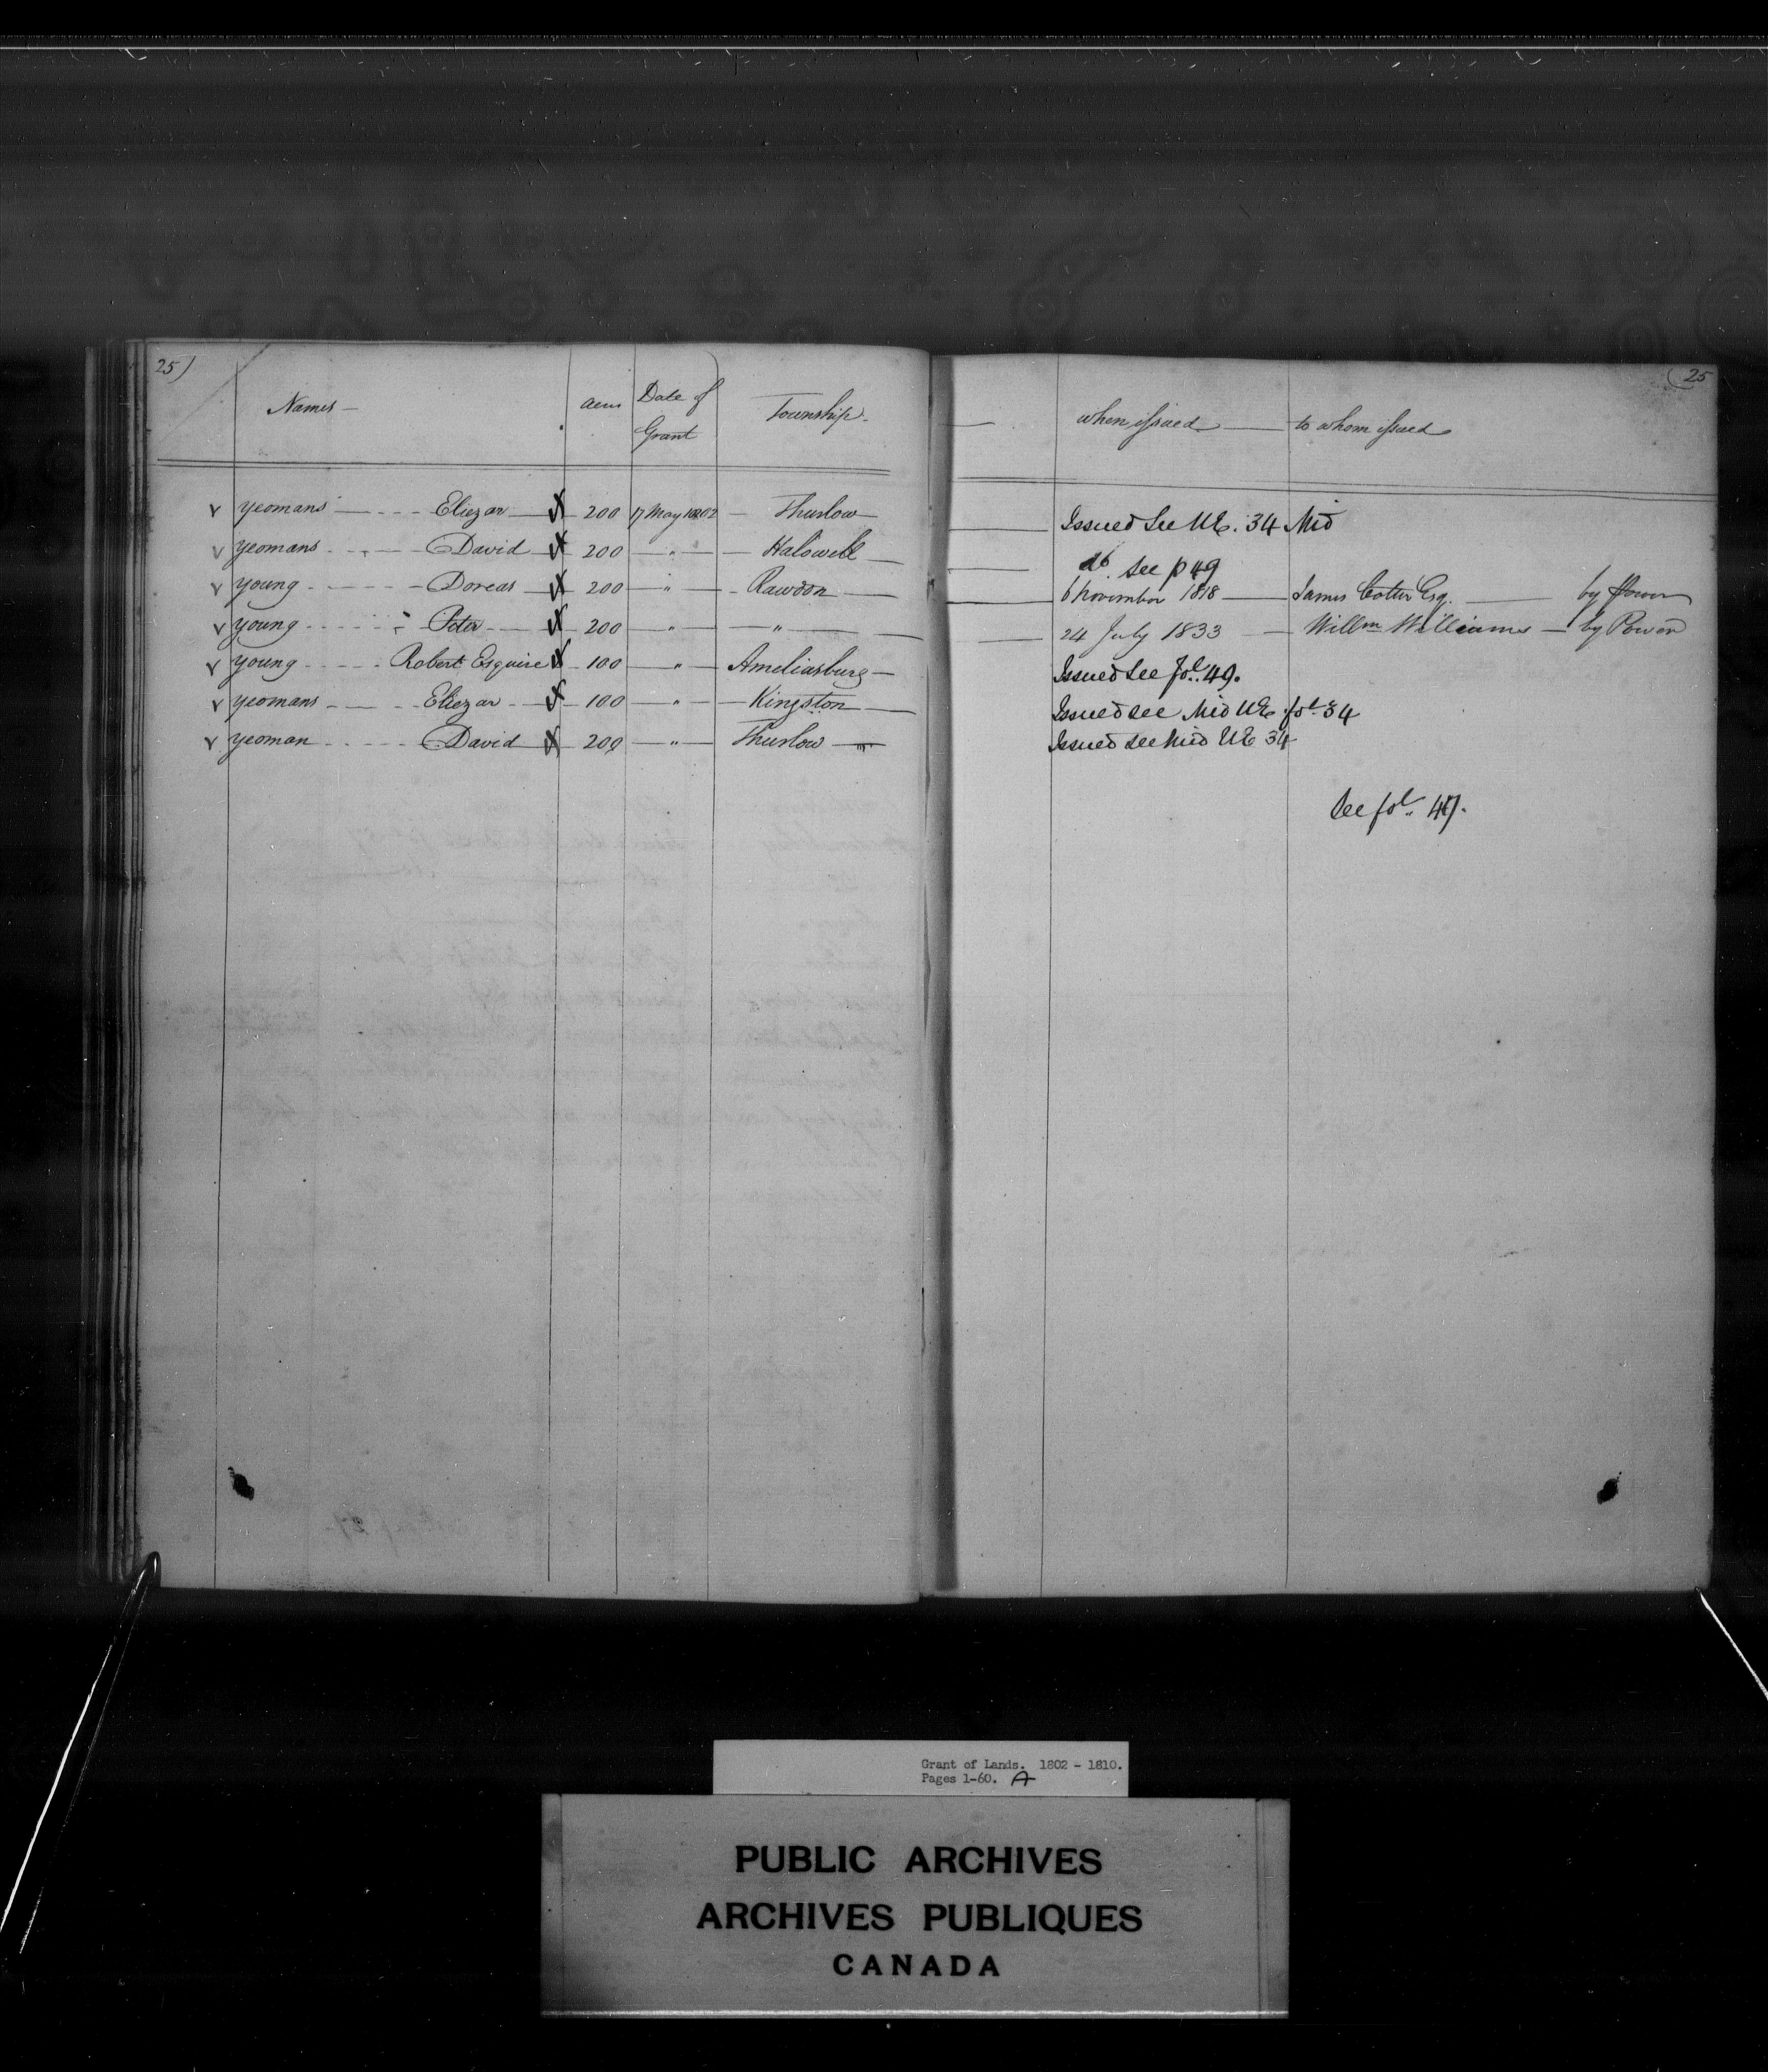 25) (25
Names — Acres Date of Grant Township — when issued — to whom issued
v Yeomans — Eliezar 200 17 May 1802 — Thurlow — Issued See UE. 34 Mid
v Yeomans — David 200 — " — Halowell — do. See p 49
v Young — Dorcas 200 — " — Rawdon — 6 November 1818 — James Cotter Esq. — by Power
v Young — Peter 200 — " — " — 24 July 1833 — Willm Williams — by Power
v Young — Robert Esquire 100 — " — Ameliasburg — Issued See fol. 49.
v Yeomans — Eliezar 100 — " — Kingston — Issued see Mid UE fol 34
v Yeoman — David 200 — " — Thurlow — Issued see Mid UE 34
See fol.
Grant of Lands. 1802 - 1810.
Pages 1-60. A
PUBLIC ARCHIVES
ARCHIVES PUBLIQUES
CANADA